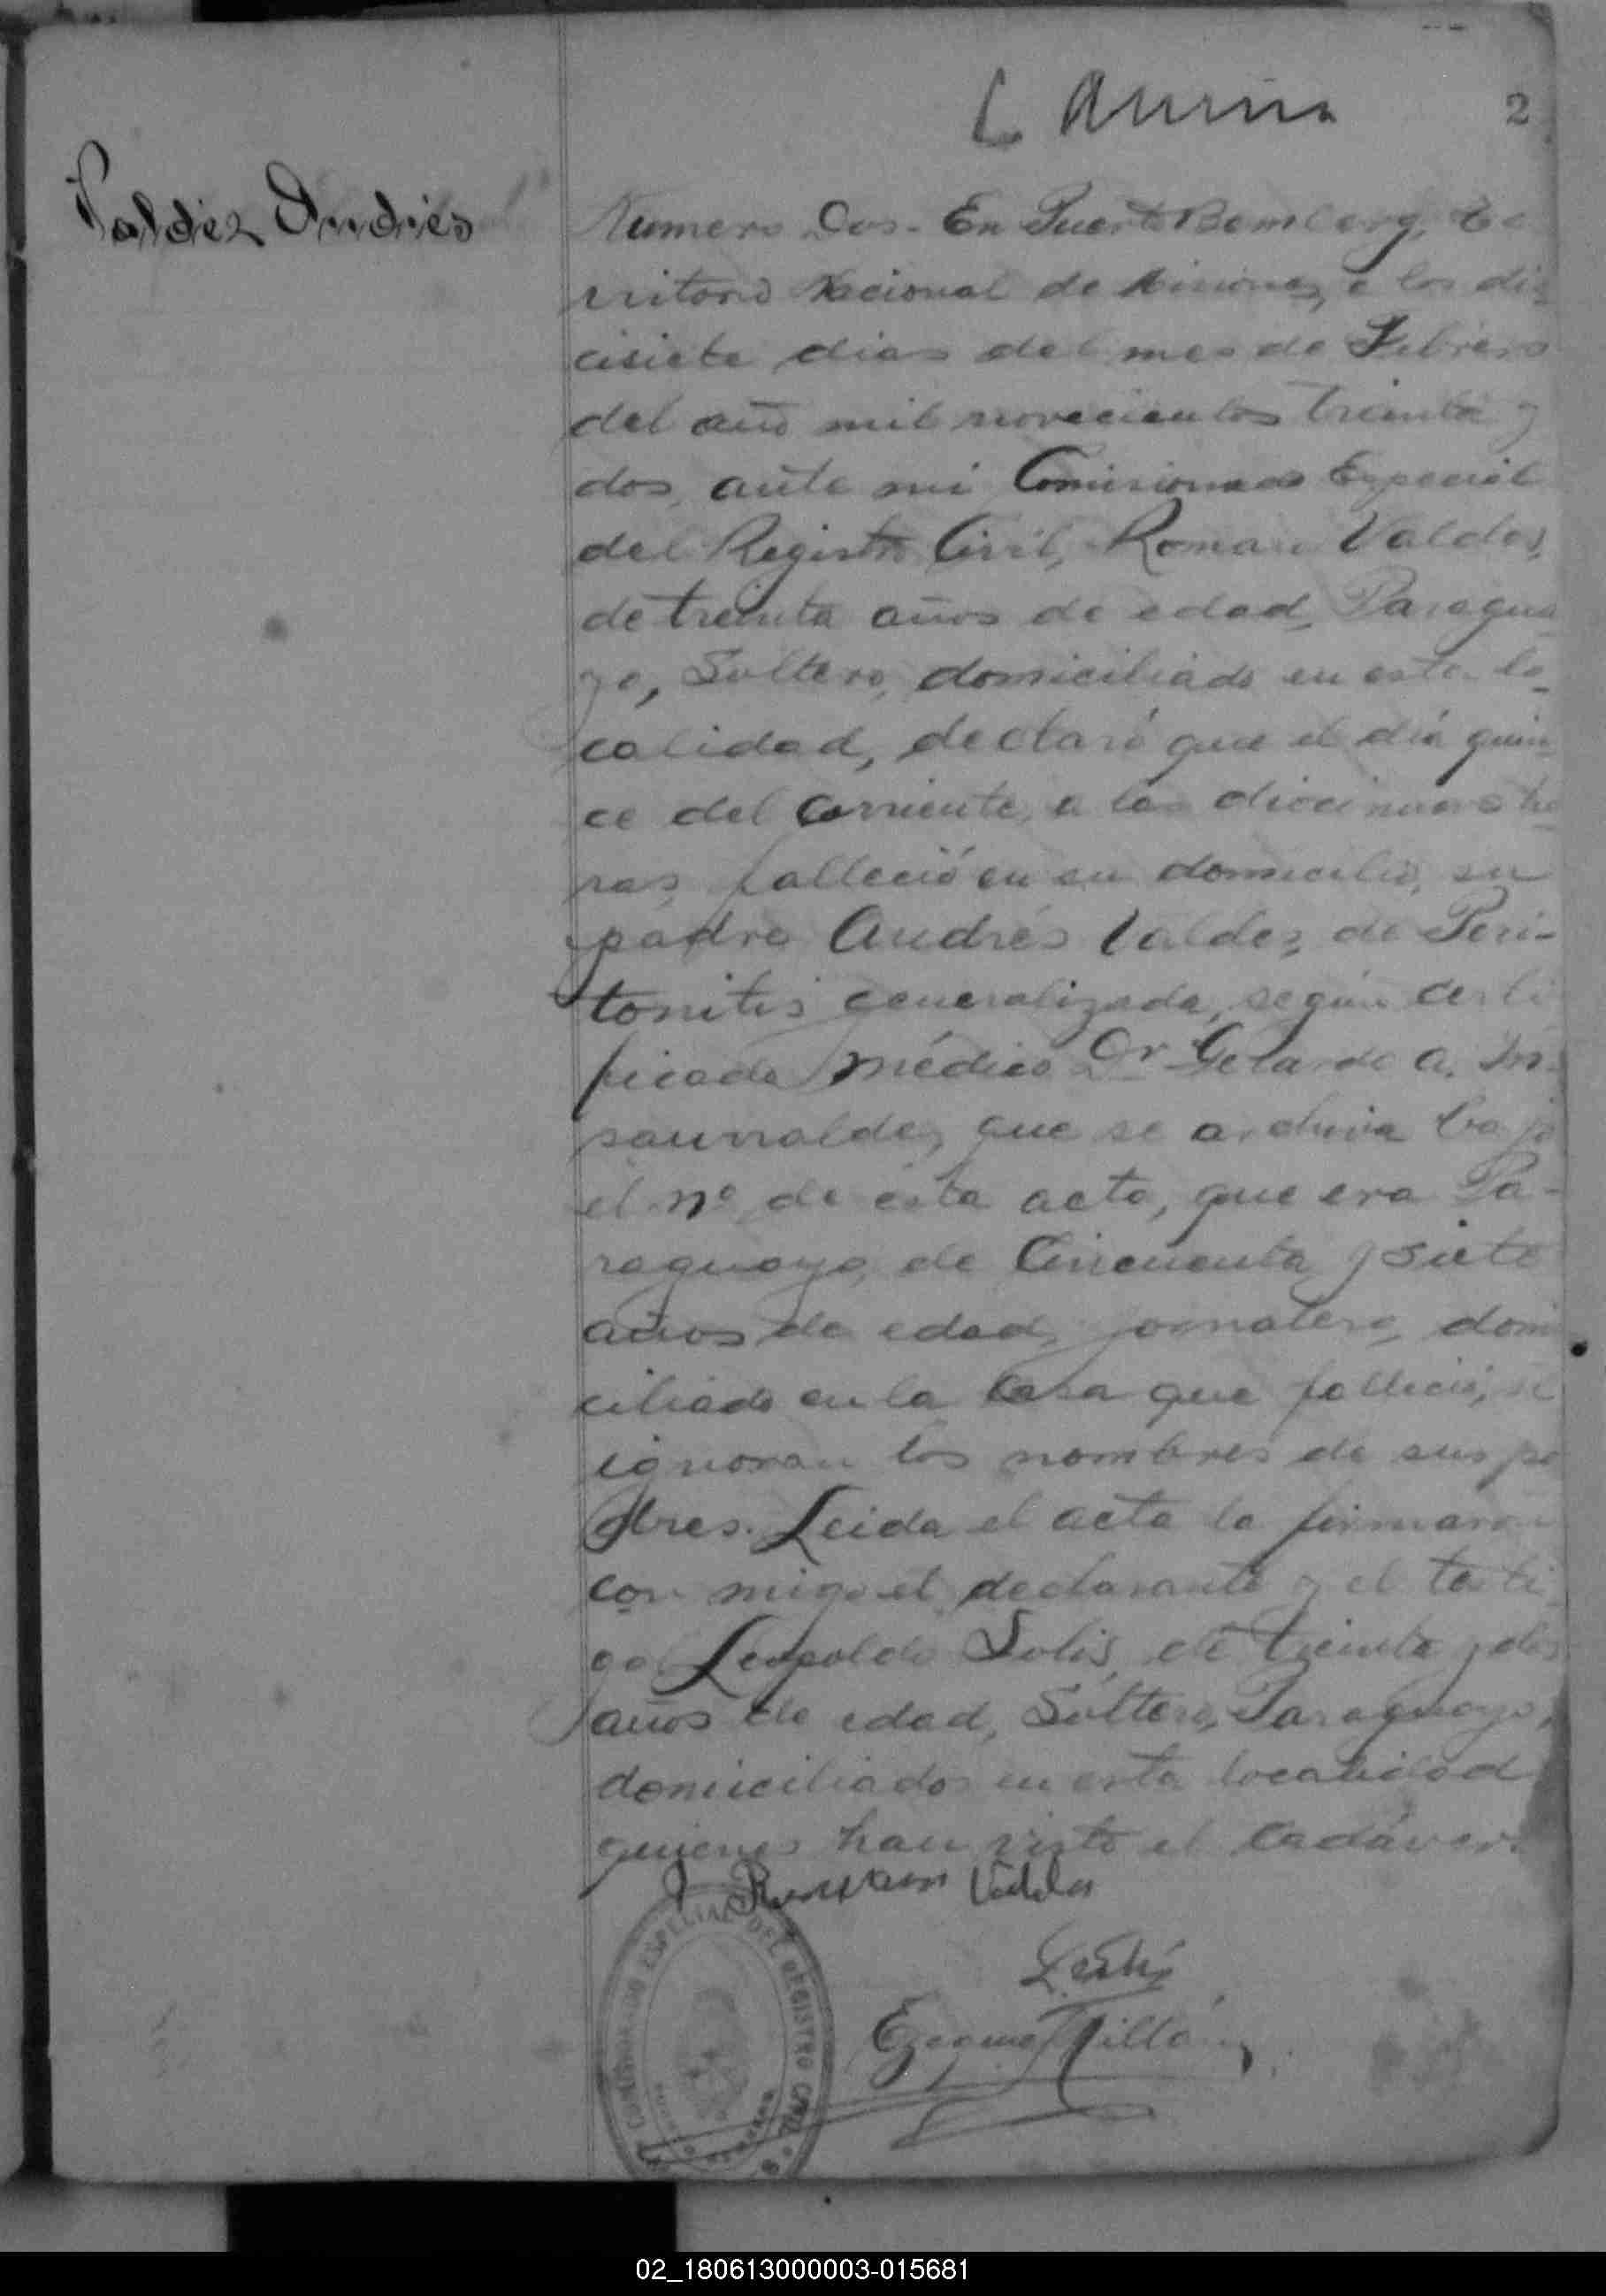 2
Valdez Andrés
Numero Dos.- En Puerto Bemberg, Te
rritorio Nacional de Misiones, a los die
cisiete dias del mes de Febrero
del año mil novecientos treinta y
dos, ante mi Comisionado Especial
del Registro Civil, Roman Valdez,
de treinta años de edad, Paragua
yo, Soltero, domiciliado en esta lo_
calidad, declaró que el día quin
ce del corriente, a las diecinueve ho
ras, falleció en su domicilio, su
padre Andrés Valdez, de Peri-
tonitis generalizada, según certi
ficado médico Dr. Gerardo A. In
saurralde, que se archiva bajo
el nº de ésta acta, que era Pa-
raguayo, de Cincuenta y siete
años de edad, jornalero, domi
ciliado en la casa que falleció, se
ignoran los nombres de sus pa
dres. Leida el acta la firmaron
con migo el declarante y el testi
go Leopoldo Solis, de treinta y dos
años de edad, Soltero, Paraguayo,
domiciliados en esta localidad
quienes han visto el cadáver.
Roman Valdez
COMISIONADO ESPECIAL DEL REGISTRO CIVIL
02_180613000003-015681